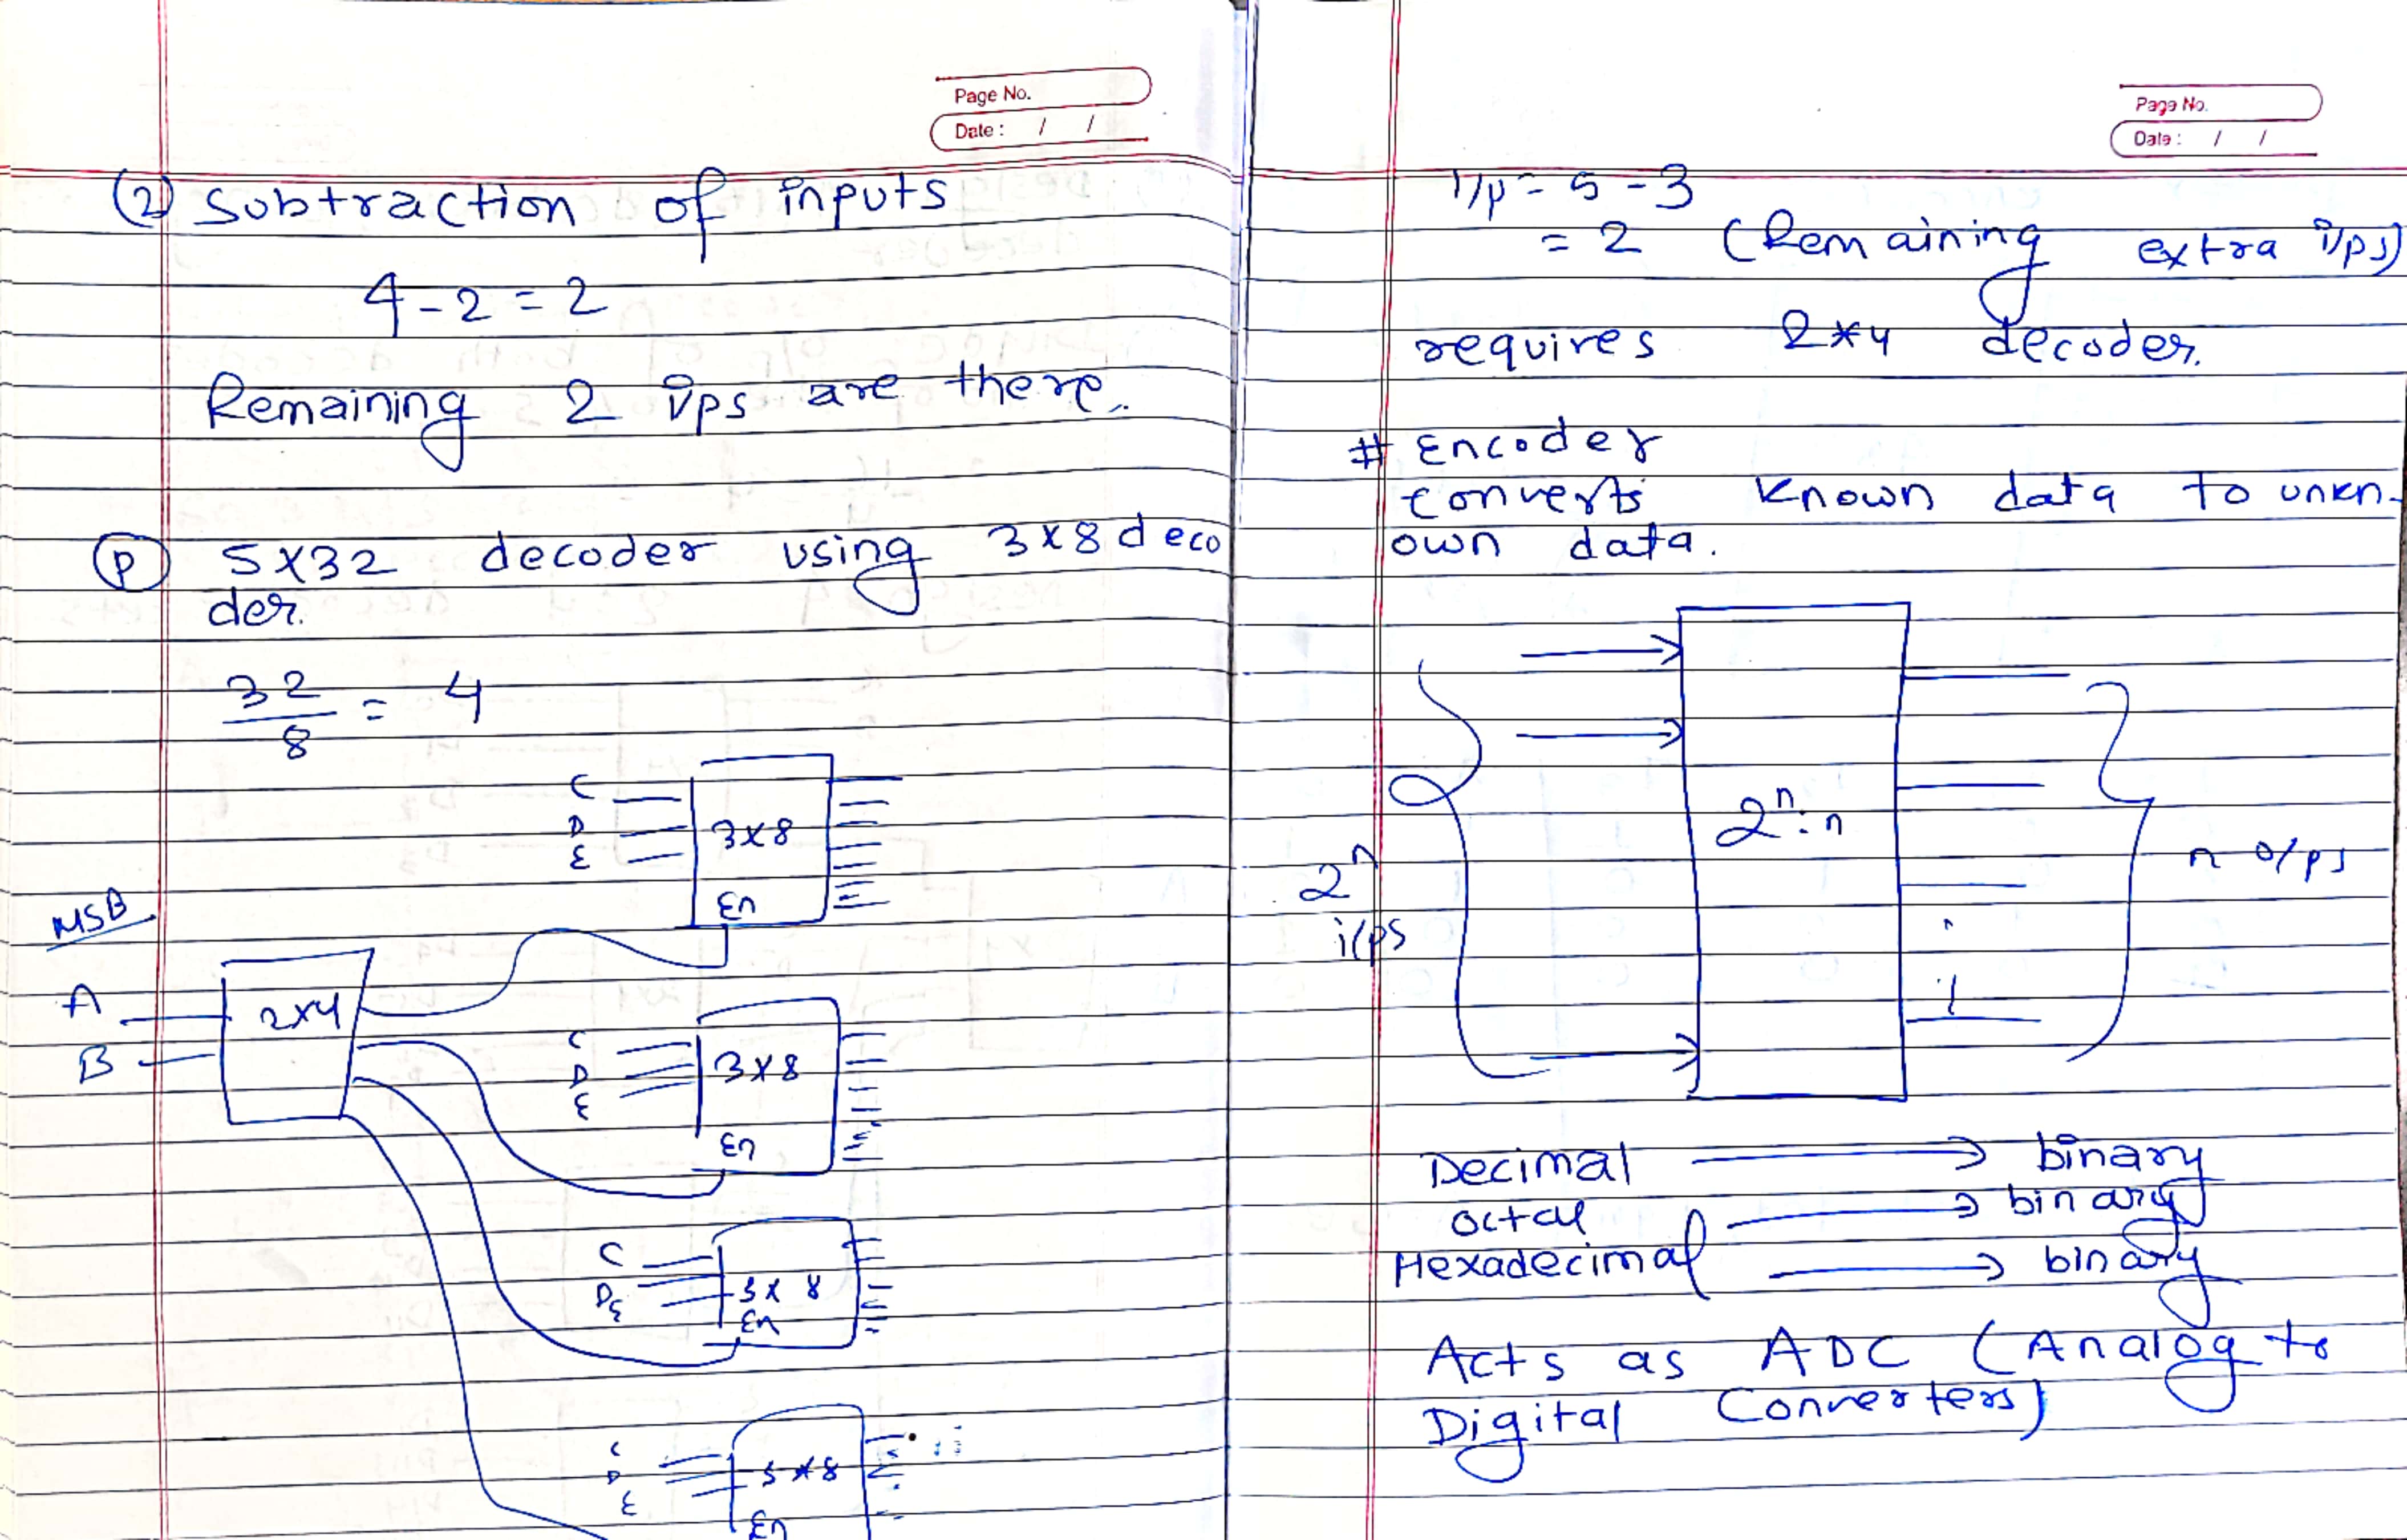 Page No.
Date : / /
(2) Subtraction of inputs
4 - 2 = 2
Remaining 2 i/ps are there.
(P) 5x32 decoder using 3x8 deco
der.
32
8
= 4
C
D
E
3x8
En
MSB
A
B
2x4
C
D
E
3x8
En
C
D
E
3x8
En
C
D
E
3x8
En
Page No.
Date : / /
i/p = 5 - 3
= 2 (Remaining extra i/ps)
requires 2*4 decoder.
# Encoder
converts known data to unkn-
own data.
2^n
i/ps
2^n : n
n o/ps
Decimal → binary
octal → binary
Hexadecimal → binary
Acts as ADC (Analog to
Digital Converters)